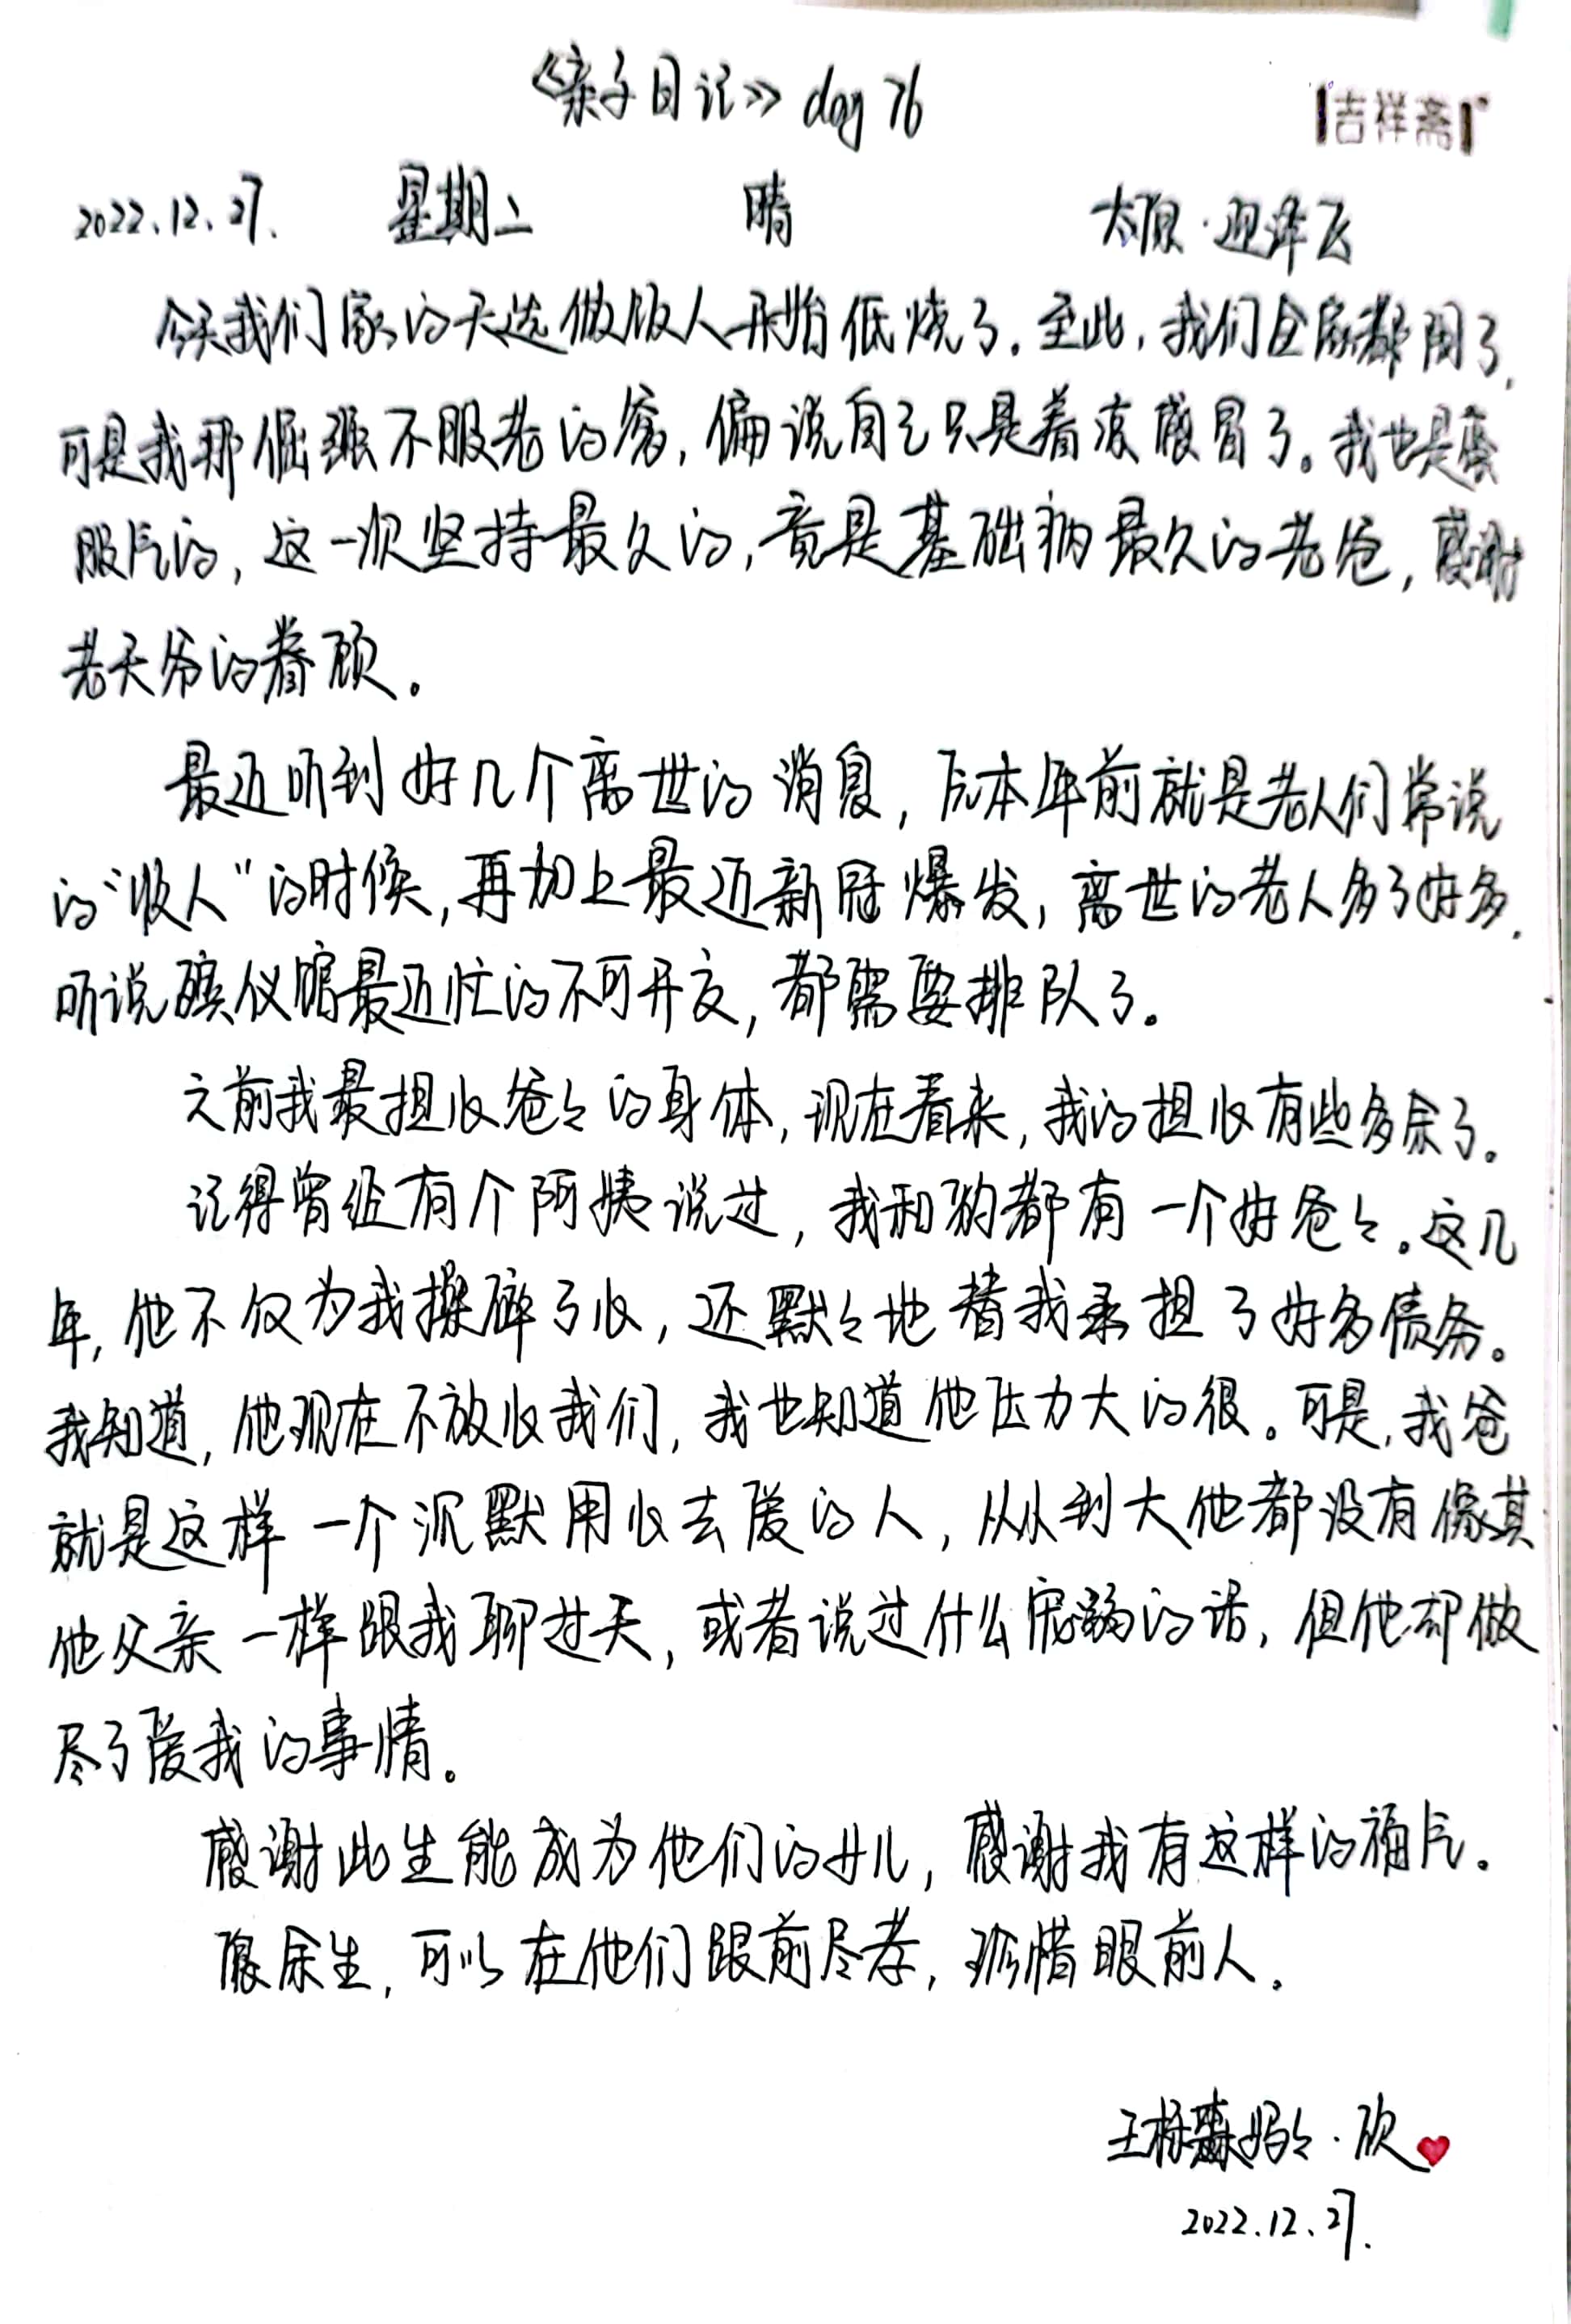 《亲子日记》day 76
吉祥斋
2022.12.27. 星期二 晴 太原·迎泽区
今天我们家的天选做饭人开始低烧了。至此，我们全家都阳了，
可是我那倔强不服老的爸，偏说自己只是着凉感冒了。我也是蛮
服气的，这一次坚持最久的，竟是基础病最久的老爸，感谢
老天爷的眷顾。
最近听到好几个离世的消息，原本年前就是老人们常说
的“收人”的时候，再加上最近新冠爆发，离世的老人多了好多，
听说殡仪馆最近忙的不可开交，都需要排队了。
之前我最担心爸爸的身体，现在看来，我的担心有些多余了。
记得曾经有个阿姨说过，我和驹都有一个好爸爸。这几
年，他不仅为我操碎了心，还默默地替我承担了好多债务。
我知道，他现在不放心我们，我也知道他压力大的很。可是，我爸
就是这样一个沉默用心去爱的人，从小到大他都没有像其
他父亲一样跟我聊过天，或者说过什么宠溺的话，但他却做
尽了爱我的事情。
感谢此生能成为他们的女儿，感谢我有这样的福气。
愿余生，可以在他们跟前尽孝，珍惜眼前人。
王栎森妈妈·欣
2022.12.27.